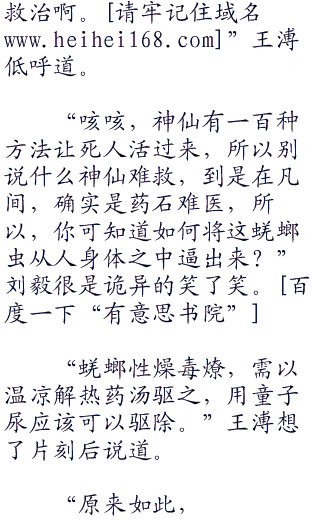 救治啊。[请牢记住域名
www.heihei168.com]”王溥
低呼道。
“咳咳，神仙有一百种
方法让死人活过来，所以别
说什么神仙难救，到是在凡
间，确实是药石难医，所
以，你可知道如何将这蜣螂
虫从人身体之中逼出来？”
刘毅很是诡异的笑了笑。[百
度一下“有意思书院”]
“蜣螂性燥毒燎，需以
温凉解热药汤驱之，用童子
尿应该可以驱除。”王溥想
了片刻后说道。
“原来如此，